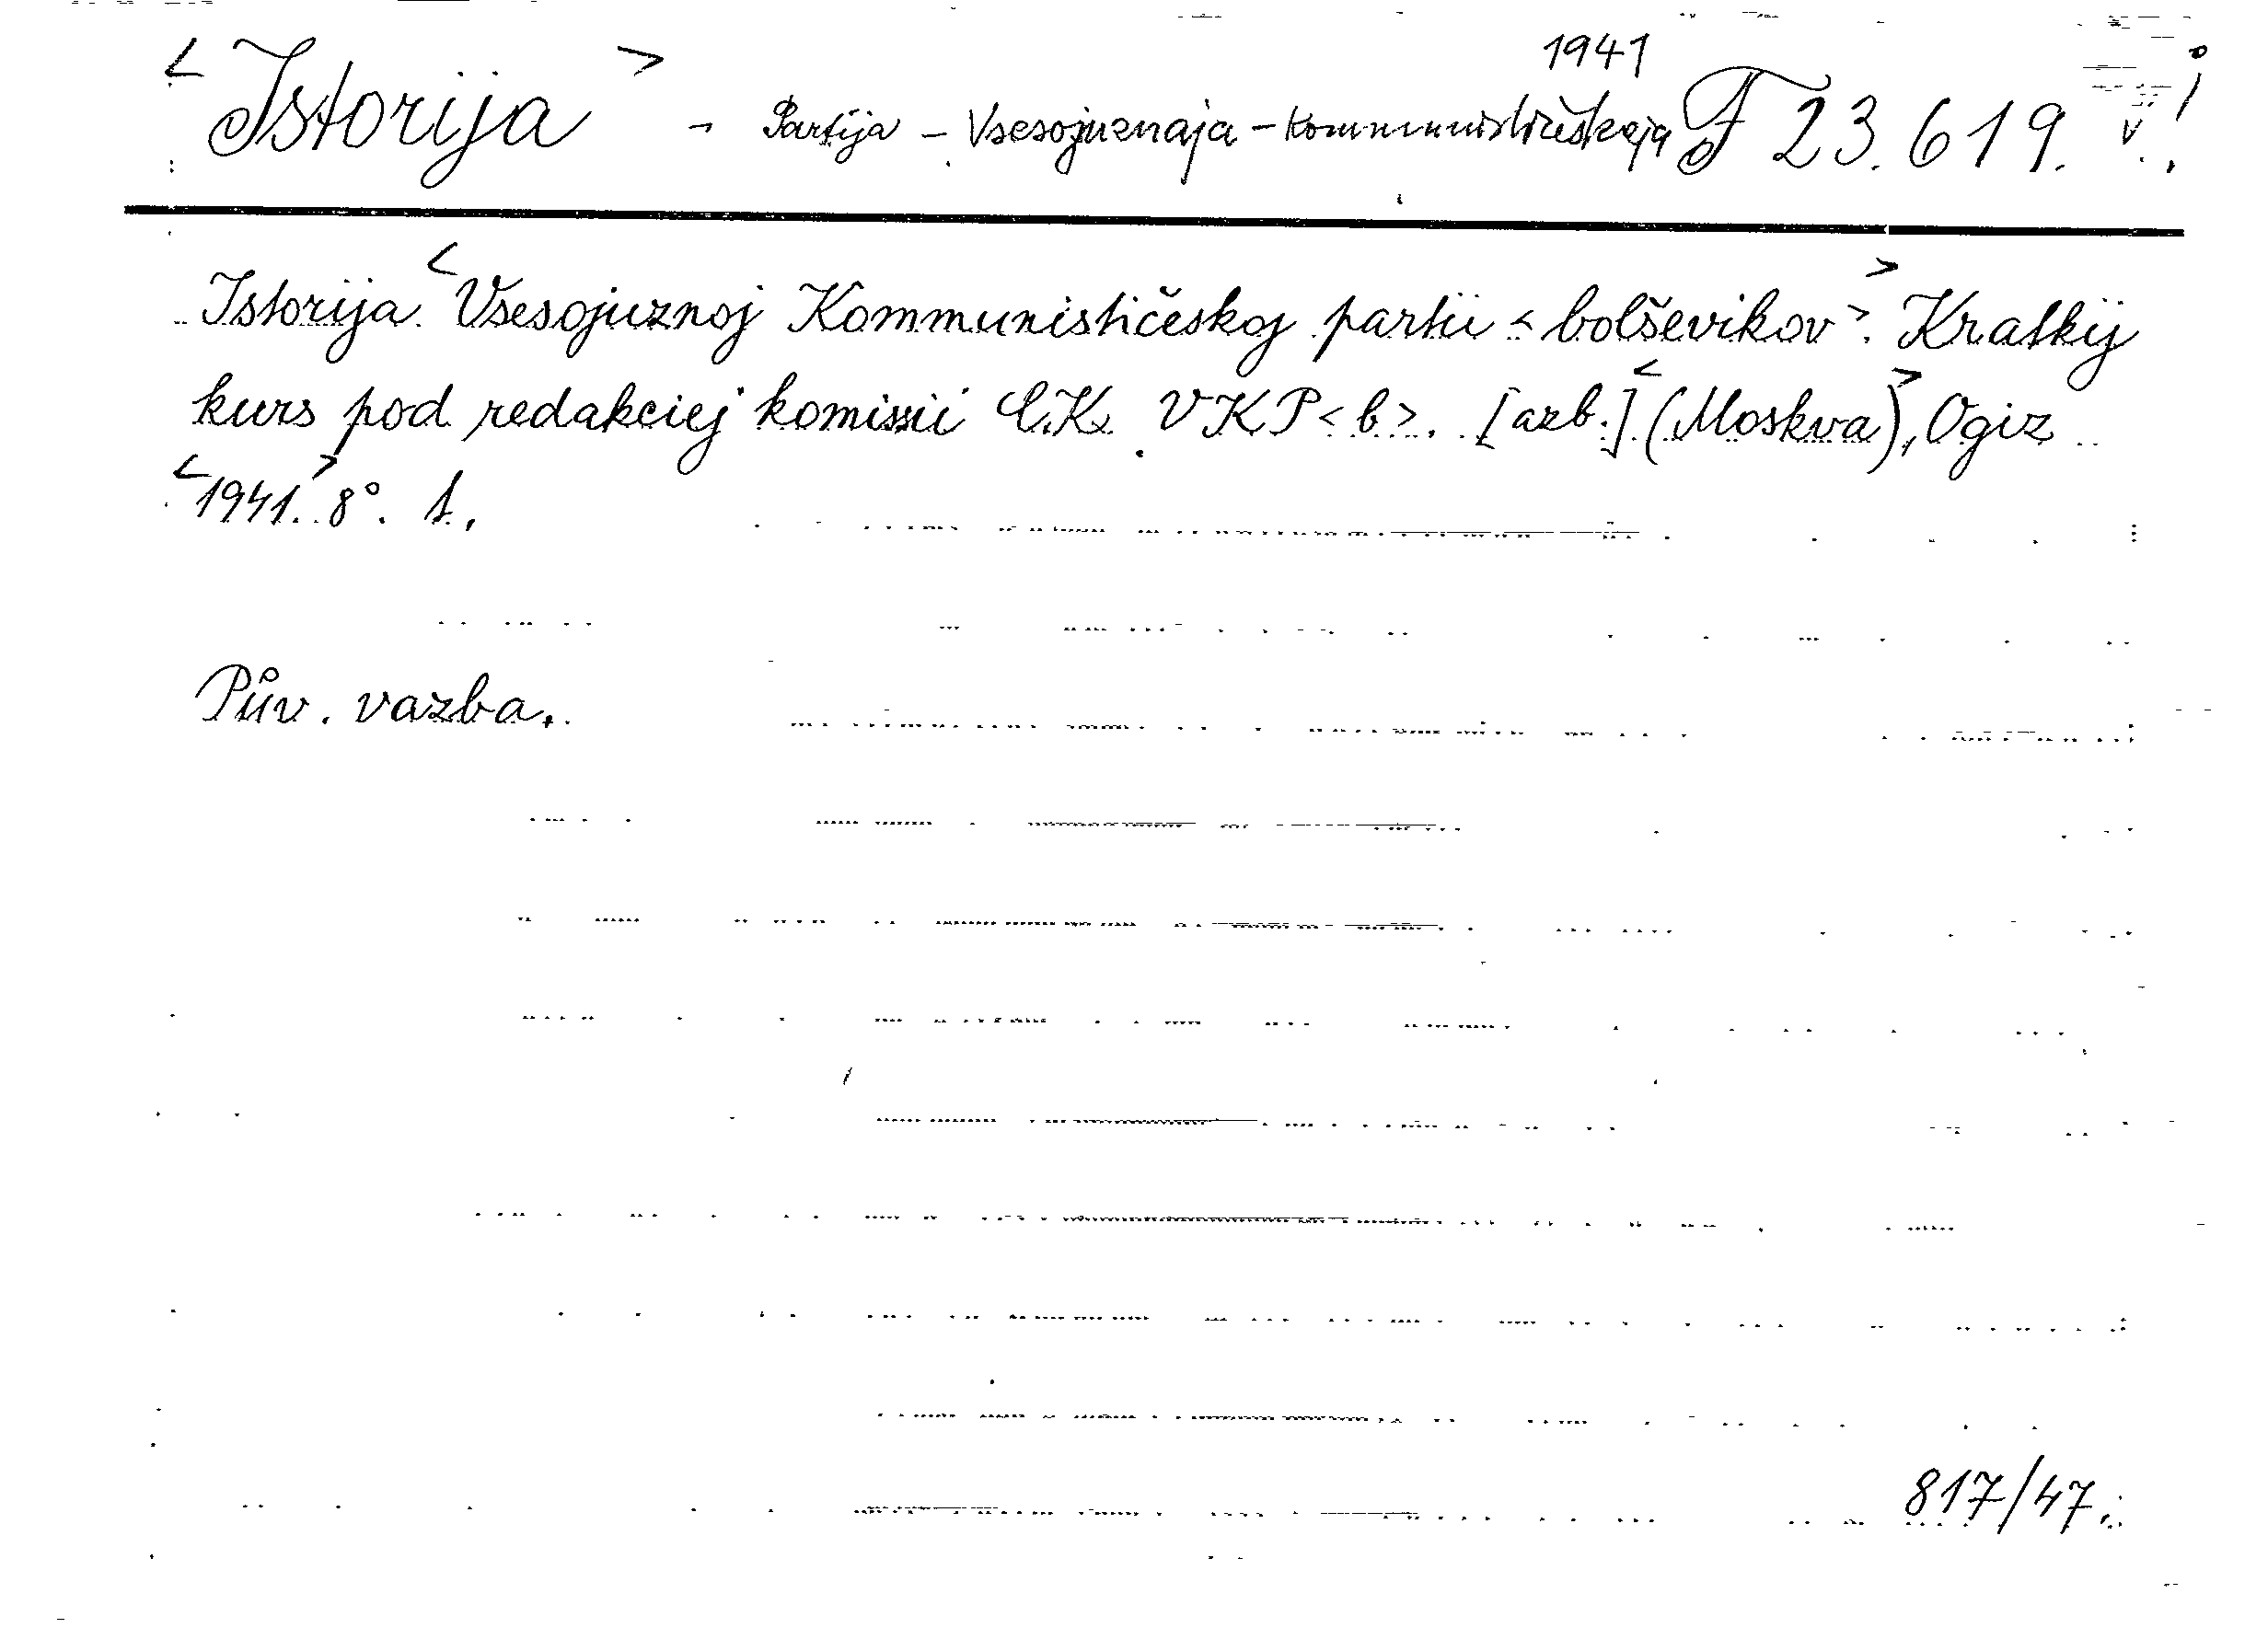 1941
<Istorija> - Partija - Vsesojuznaja - Kommunističeskaja F 23.619.
Istorija <Vsesojuznoj Kommunističeskoj partii <bolševikov>.> Kratkij
kurs pod redakciej komissii CK. VKP<b>. [azb.] <(Moskva)>, Ogiz
<1941.> 8°.
Pův. vazba.
817/47.